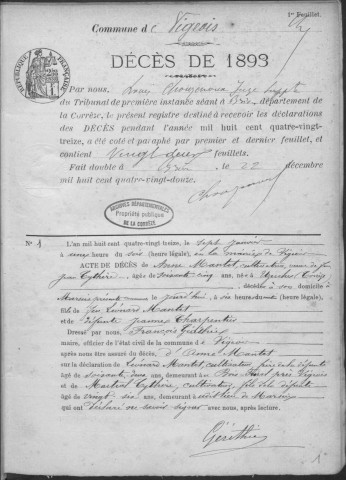 1er Feuillet.
Commune de Vigeois
DÉCÈS DE 1893
RÉPUBLIQUE FRANÇAISE
Par nous, Juge Suppt
du Tribunal de première instance séant à Brive département de
la Corrèze, le présent registre destiné à recevoir les déclarations
des DÉCÈS pendant l'année mil huit cent quatre-vingt-
treize, a été coté et paraphé par premier et dernier feuillet, et
contient Vingt deux feuillets.
Fait double à Brive le 22 décembre
mil huit cent quatre-vingt-douze.
ARCHIVES DÉPARTEMENTALES
Propriété publique
DE LA CORRÈZE
N° 1
L'an mil huit cent quatre-vingt treize, le sept janvier
à heure du soir (heure légale), en la mairie de Vigeois
ACTE DE DÉCÈS de Anne Mantet, cultivatrice, veuve de feu
Jean âgée de soixante cinq ans, née à
décédée à son domicile à
le à six heures du (heure légale),
fille de feu Léonard Mantet
et de défunte Jeanne Charpentier
Dressé par nous, François
maire, officier de l'état civil de la commune de Vigeois
après nous être assuré du décès d'Anne Mantet
sur la déclaration de Léonard Mantet, cultivateur, frère de la défunte
âgé de soixante deux ans, demeurant au près Vigeois
et de Martial cultivateur, fils de la défunte
âgé de vingt six ans, demeurant au
qui ont déclaré ne savoir signer avec nous, après lecture.
1